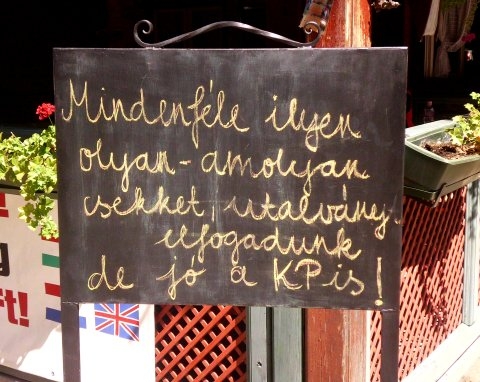 Mindenféle ilyen
olyan-amolyan
csekket, utalványt
elfogadunk
de jó a KP is!